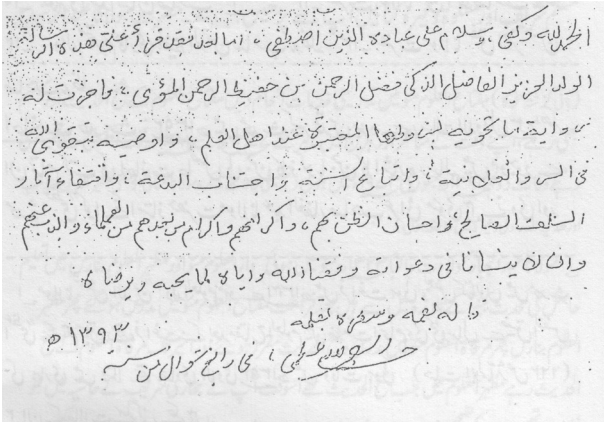 الحمد لله وكفى، وسلام على عباده الذين اصطفى، اما بعد فقد قرأ على هذه الرسالة
الولد العزيز الفاضل الذكى فضل الرحمن بن حفيظ الرحمن المؤى، واجزت له
رواية ما تحويه بشروطها المعتبرة عند اهل العلم، واوصيه بتقوى الله
فى السر والعلانية، واتباع السنة واجتناب البدعة، واقتفاء آثار
السلف الصالح، واحسان الظن بهم، واكرامهم واكرام من بعدهم من العلماء والذب عنهم
وان لا ينسانا فى دعواته وفقنا الله واياه لما يحبه ويرضاه
قاله بفمه وسطره بقلمه
حبيب الرحمن الاعظمى، فى رابع شوال من سنة ١٣٩٣ ه